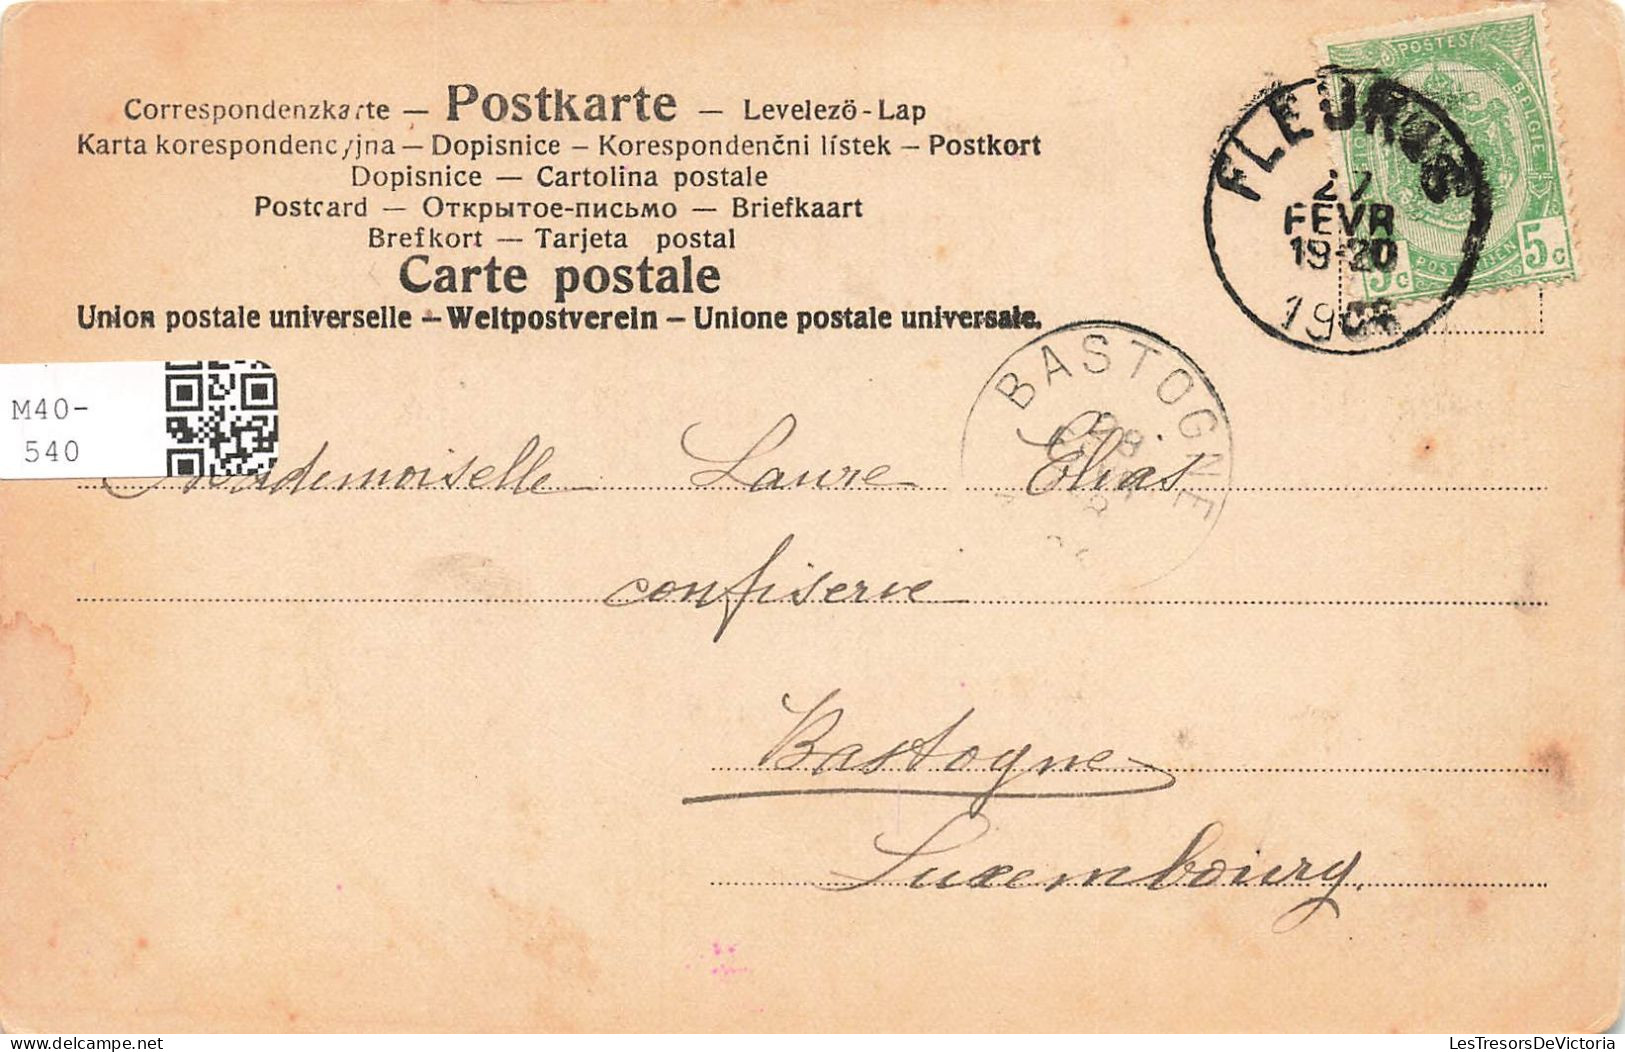 Correspondenzkarte — Postkarte — Levelező-Lap
Karta korespondencyjna — Dopisnice — Korespondenčni lístek — Postkort
Dopisnice — Cartolina postale
Postcard — Открытое-письмо — Briefkaart
Brefkort — Tarjeta postal
Carte postale
Union postale universelle — Weltpostverein — Unione postale universale.
POSTES
BELGIE
POSTERIJEN
5c 5c
FLEURUS
27
FEVR
19-20
BASTOGNE
M40-
540
Mademoiselle Laure Elias
confiserie
Bastogne
Luxembourg.
delcampe.net
LesTresorsDeVictoria